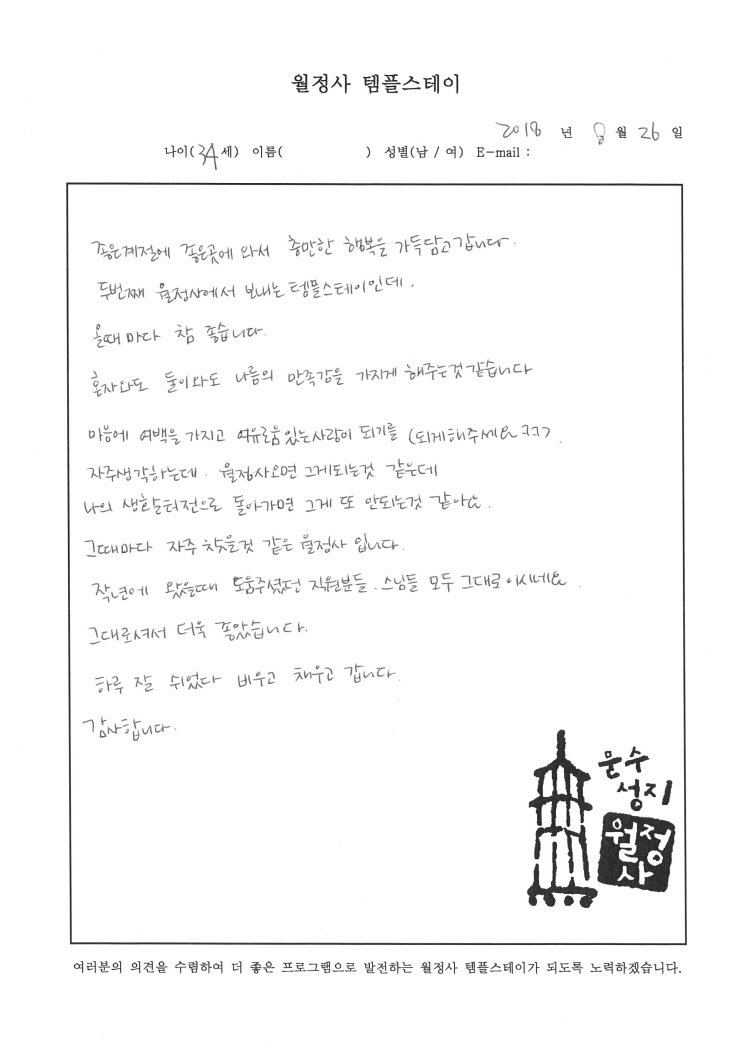 월정사 템플스테이
2018 년 8 월 26 일
나이(34세) 이름( ) 성별(남 / 여) E-mail :
좋은계절에 좋은곳에 와서 충만한 행복을 가득담고갑니다.
두번째 월정사에서 보내는 템플스테이인데,
올때마다 참 좋습니다.
혼자와도 둘이와도 나름의 만족감을 가지게 해주는것같습니다
마음에 여백을 가지고 여유로움있는사람이 되기를 (되게해주세요 ㅋㅋ)
자주생각하는데. 월정사오면 그게되는것 같은데
나의 생활터전으로 돌아가면 그게 또 안되는것 같아요.
그때마다 자주 찾을것 같은 월정사 입니다.
작년에 왔을때 도움주셨던 직원분들. 스님들 모두 그대로이시네요.
그대로셔서 더욱 좋았습니다.
하루 잘 쉬었다 비우고 채우고 갑니다.
감사합니다.
문수
성지
월정
사
여러분의 의견을 수렴하여 더 좋은 프로그램으로 발전하는 월정사 템플스테이가 되도록 노력하겠습니다.